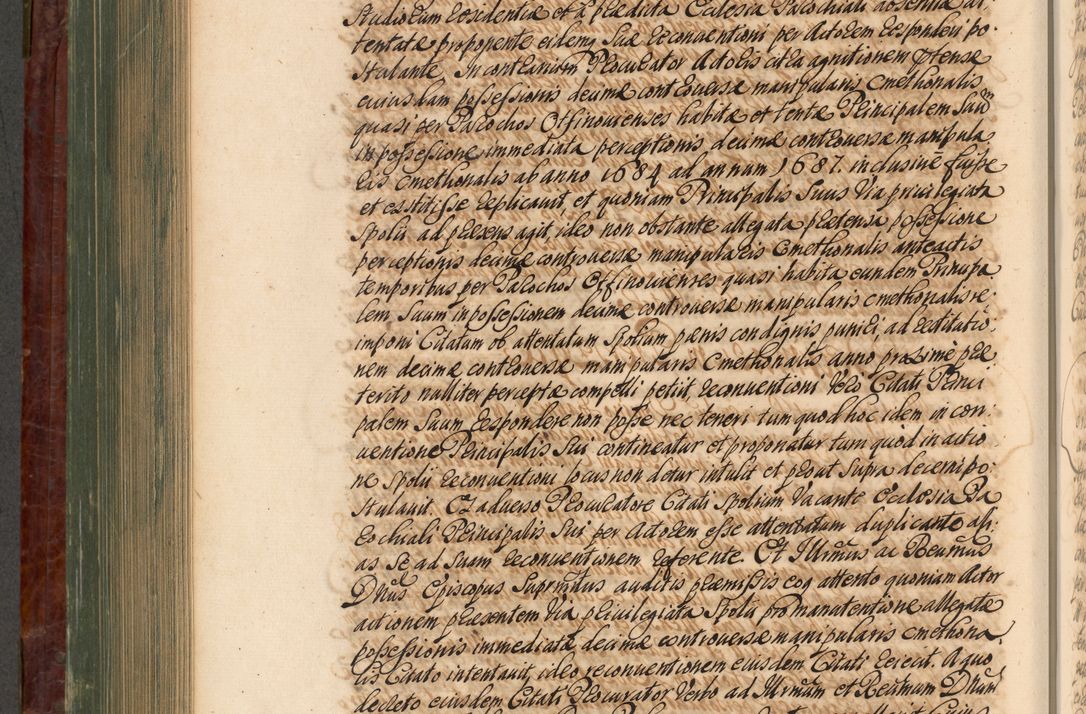 Studiorum residentiæ et à prædicta Ecclesia Parochiali absentiæ at:
tentatæ proponente eidemq Suæ Reconventioni per Actorem responderi po:
stulante, In contrarium Procurator Actoris citra agnitionem prætensæ
cuiusdam possessionis decimæ controversæ manipularis cmethonalis
quasi per Parochos Offinovienses habitæ et tentæ Principalem Suum
in possessione immediata perceptionis decimæ controversæ manipula
ris cmethonalis ab anno 1684 ad annum 1687. inclusive fuisse
et extitisse replicavit et quoniam Principalis Suus via privilegiata
Spolii ad præsens agit, ideo non obstante allegata prætensa possessione
perceptionis decimæ controversæ manipularis Cmethonalis anteactis
temporibus per Parochos Offinovienses quasi habita eundem Principa
lem Suum in possessionem decimæ controversæ manipularis cmethonalis re:
imponi Citatum ob attentatum Spolium pænis condignis puniri, ad restitutio:
nem decimæ controversæ manipularis Cmethonalis anno proximè præ
terito nulliter perceptæ compelli petiit, reconventioni verò Citati Princi
palem Suum respondere non posse nec teneri tum quod hoc idem in con:
ventione Principalis Sui contineatur et proponatur tum quod in actio
ne Spolii reconventioni locus non detur intulit et prout Supra decerni po:
stulavit. Ex adverso Procuratore Citati Spolium vacante Ecclesia Pa
rochiali Principalis Sui per Actorem esse attentatum duplicante ali:
as Se ad Suam reconventionem referente. Et Illrmus ac Rendmus
Dnus Episcopus Suprmtus auditis præmissis eoq attento quoniam Actor
actionem præsentem via privilegiata Spolii pro manutentione allegatæ
possessionis immediatæ decimæ controversæ manipularis cmethona
lis Citato intentavit, ideo reconventionem eiusdem Citati reiecit. A quo
decreto eiusdem Citati Procurator verbo ad Illrmum et Rendmum Dnum